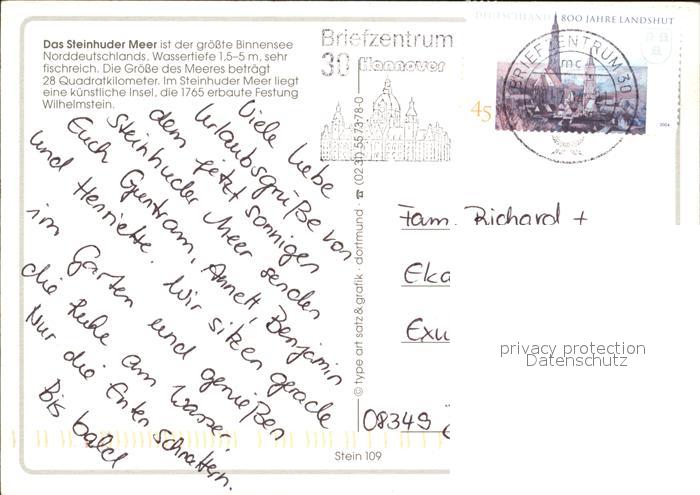 Das Steinhuder Meer ist der größte Binnensee
Norddeutschlands. Wassertiefe 1,5–5 m, sehr
fischreich. Die Größe des Meeres beträgt
28 Quadratkilometer. Im Steinhuder Meer liegt
eine künstliche Insel, die 1765 erbaute Festung
Wilhelmstein.
Viele liebe
Urlaubsgrüße von
dem jetzt sonnigen
Steinhuder Meer senden
Euch Guntram, Annett, Benjamin
und Henriette. Wir sitzen gerade
im Garten und genießen
die Ruhe am Wasser.
Nur die Enten schnattern.
Bis bald
© type art satz & grafik · dortmund · ☎ (02 31) 55 73 78-0
Briefzentrum
30 Hannover
DEUTSCHLAND 800 JAHRE LANDSHUT
45
2004
BRIEFZENTRUM 30
mc
Fam. Richard +
Eka
Exu
08349
privacy protection
Datenschutz
Stein 109